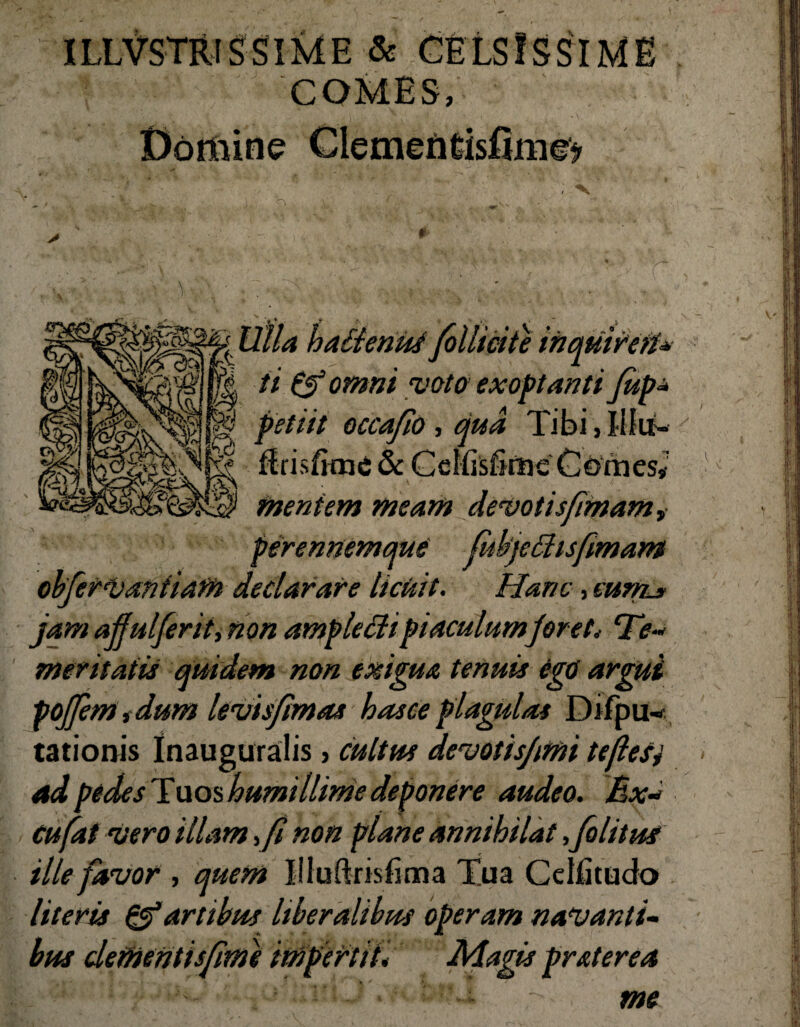 ILLVSTRISSIME & CELSISSIME
COMES,
Domine Clementisſime,
NUlla hactenus ſollicite inquiren-
ti & omni voto exoptanti ſup-
petiit occaſio, quâ Tibi, Illu-
ſtrisſime & Celſisſime Comes,
mentem meam devotisſimam,
perennemque ſubjectisſimam
obſervantiam declarare licuit. Hanc, cum
jam affulſerit, non amplecti piaculum foret. Te-
meritatis quidem non exiguæ tenuis ego argui
poſſem, dum levisſimas hasce plagulas Diſpu-
tationis Inauguralis, cultus devotisſimi teſtes,
ad pedes Tuos humillime deponere audeo. Ex-
cuſat vero illam, ſi non plane annihilat, ſolitus
ille favor, quem Illuſtrisſima Tua Celſitudo
literis & artibus liberalibus operam navanti-
bus clementisſimè impertit. Magis præterea
me